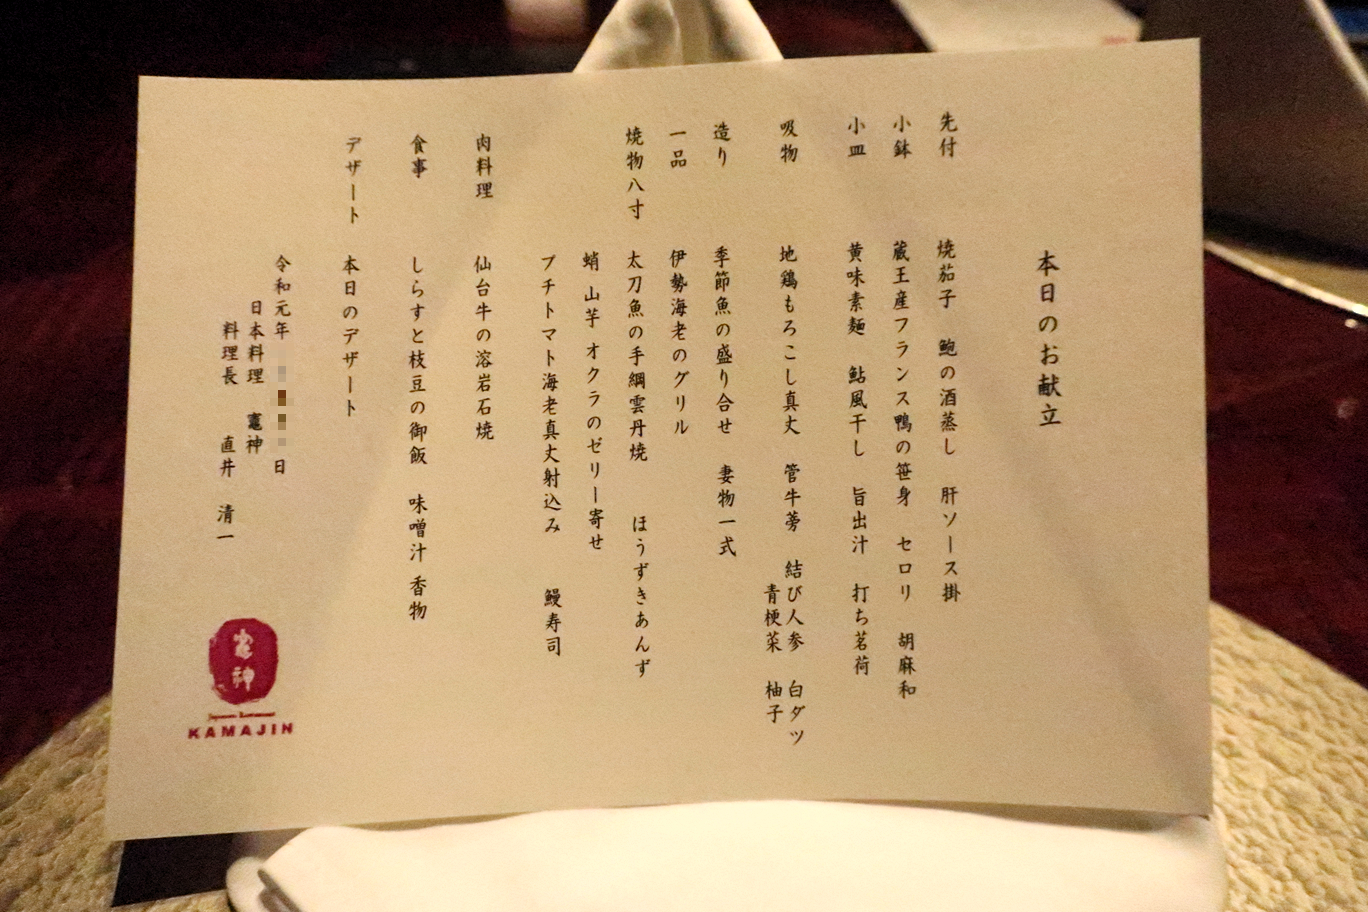 本日のお献立
先付 焼茄子 鮑の酒蒸し 肝ソース掛
小鉢 蔵王産フランス鴨の笹身 セロリ 胡麻和
小皿 黄味素麺 鮎風干し 旨出汁 打ち茗荷
吸物 地鶏もろこし真丈 管牛蒡 結び人参 白ダツ
青梗菜 柚子
造り 季節魚の盛り合せ 妻物一式
一品 伊勢海老のグリル
焼物八寸 太刀魚の手綱雲丹焼 ほうずきあんず
蛸 山芋 オクラのゼリー寄せ
プチトマト海老真丈射込み 鰻寿司
肉料理 仙台牛の溶岩石焼
食事 しらすと枝豆の御飯 味噌汁 香物
デザート 本日のデザート
令和元年 日
日本料理 竈神
料理長 直井 清一
竈神
Japanese Restaurant
KAMAJIN